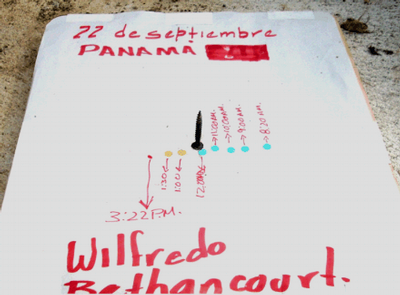 22 de septiembre
PANAMÁ
11:00AM.
10:00AM.
9:00AM.
8:20AM.
1:30
1:00
12:00
3:22P.M.
Wilfredo
Bethancourt.